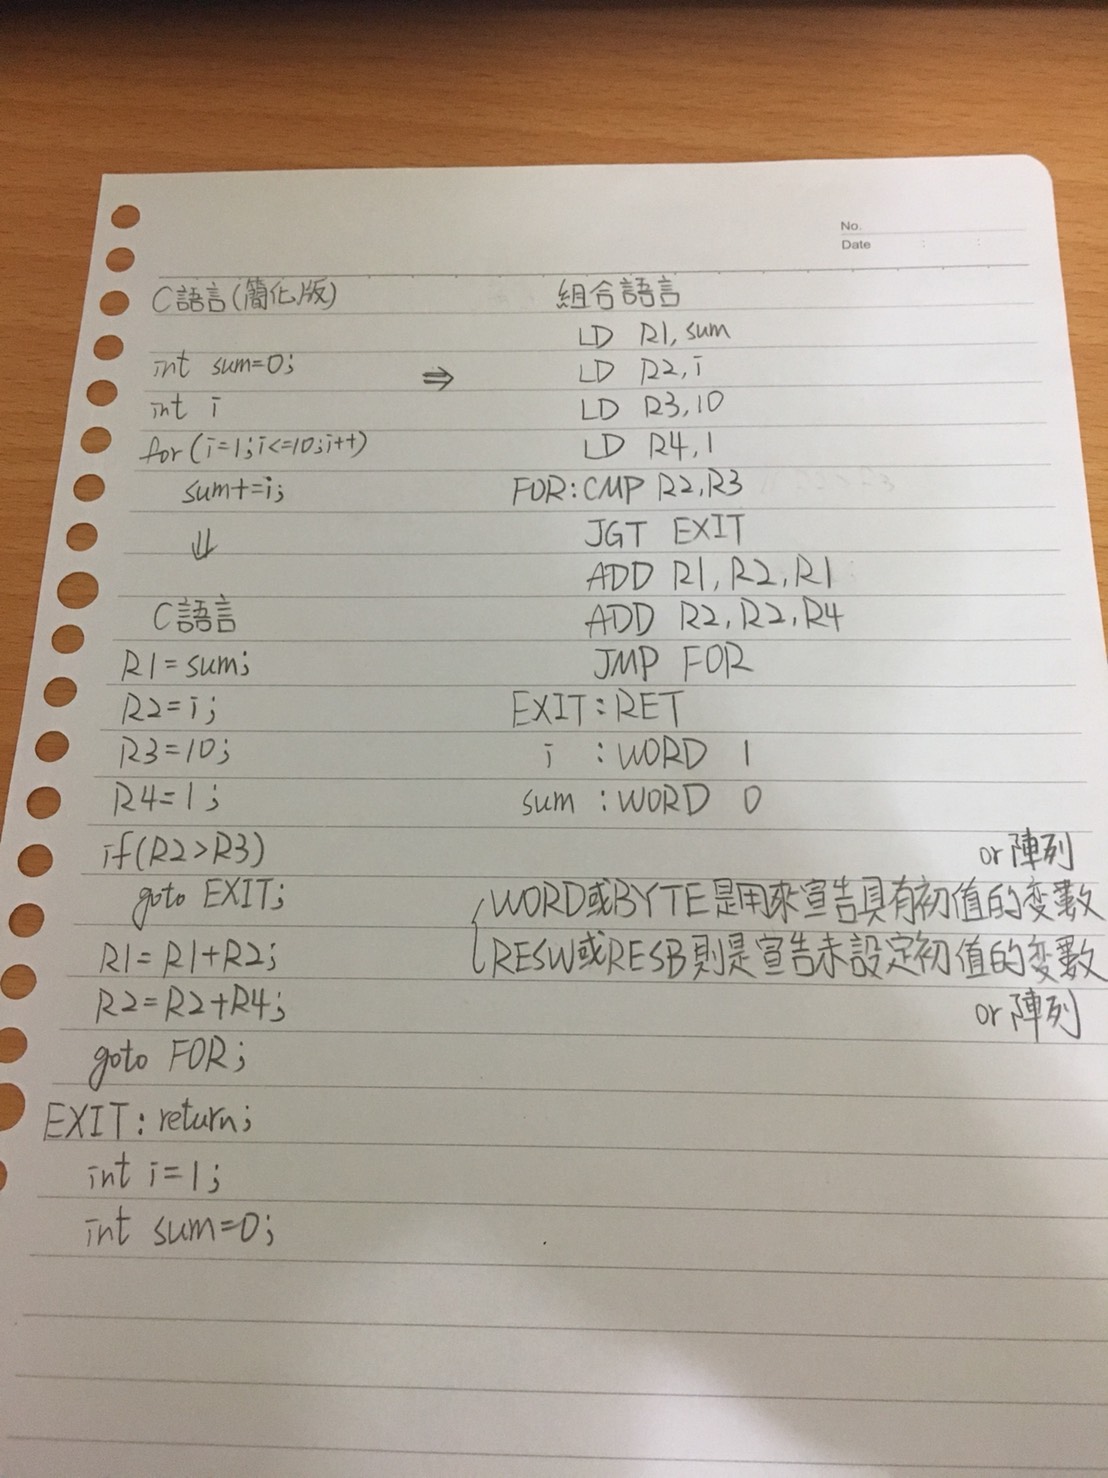 No.
Date
C語言(簡化版)
int sum=0;
int i
for(i=1;i<=10;i++)
sum+=i;
⇓
C語言
R1=sum;
R2=i;
R3=10;
R4=1;
if(R2>R3)
goto EXIT;
R1=R1+R2;
R2=R2+R4;
goto FOR;
EXIT: return;
int i=1;
int sum=0;
⇒
組合語言
LD R1,sum
LD R2,i
LD R3,10
LD R4,1
FOR:CMP R2,R3
JGT EXIT
ADD R1,R2,R1
ADD R2,R2,R4
JMP FOR
EXIT:RET
i :WORD 1
sum :WORD 0
or陣列
WORD或BYTE是用來宣告具有初值的變數
RESW或RESB則是宣告未設定初值的變數
or陣列